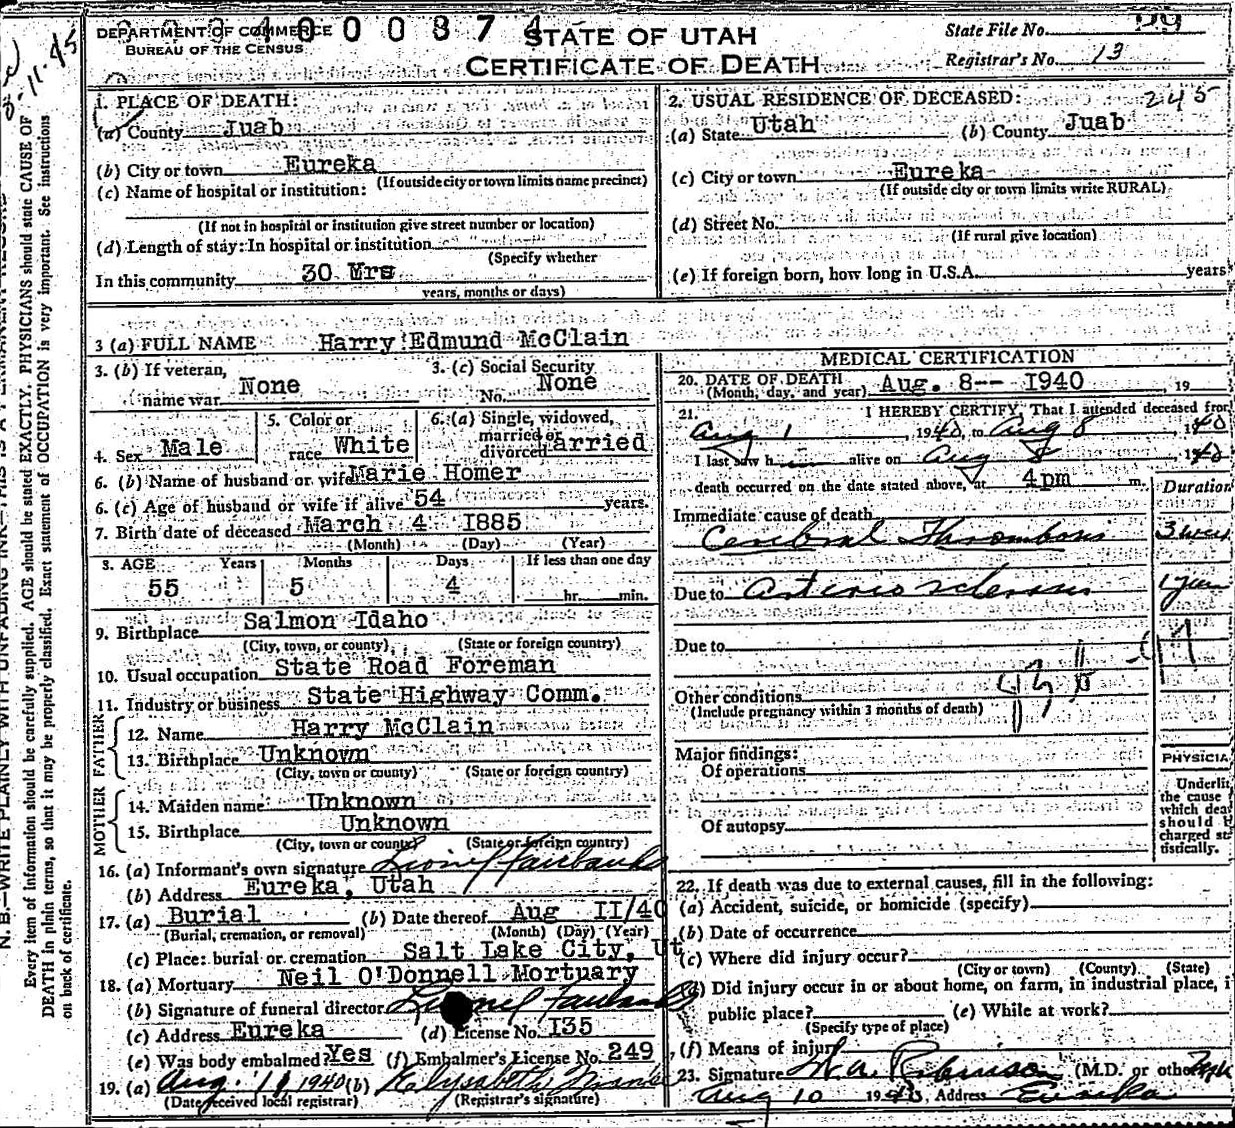 DEPARTMENT OF COMMERCE
BUREAU OF THE CENSUS
STATE OF UTAH
CERTIFICATE OF DEATH
State File No.
Registrar's No. 13
1. PLACE OF DEATH:
(a) County Juab
(b) City or town Eureka
(If outside city or town limits name precinct)
(c) Name of hospital or institution:
(If not in hospital or institution give street number or location)
(d) Length of stay: In hospital or institution
(Specify whether
In this community 30 Mrs
years, months or days)
2. USUAL RESIDENCE OF DECEASED: 245
(a) State Utah (b) County Juab
(c) City or town Eureka
(If outside city or town limits write RURAL)
(d) Street No.
(If rural give location)
(e) If foreign born, how long in U.S.A. years
3 (a) FULL NAME Harry Edmund McClain
3. (b) If veteran, name war None
3. (c) Social Security No. None
4. Sex Male
5. Color or race White
6. (a) Single, widowed, married or divorced arried
6. (b) Name of husband or wife Marie Homer
6. (c) Age of husband or wife if alive 54 years.
7. Birth date of deceased March 4 I885
(Month) (Day) (Year)
8. AGE Years Months Days If less than one day
55 5 4 hr. min.
9. Birthplace Salmon Idaho
(City, town, or county) (State or foreign country)
10. Usual occupation State Road Foreman
11. Industry or business State Highway Comm.
FATHER
12. Name Harry McClain
13. Birthplace Unknown
(City, town or county) (State or foreign country)
MOTHER
14. Maiden name Unknown
15. Birthplace Unknown
(City, town or county) (State or foreign country)
16. (a) Informant's own signature Lionel Fairbanks
(b) Address Eureka, Utah
17. (a) Burial (b) Date thereof Aug II/40
(Burial, cremation, or removal) (Month) (Day) (Year)
(c) Place: burial or cremation Salt Lake City, Ut
18. (a) Mortuary Neil O'Donnell Mortuary
(b) Signature of funeral director Lionel Fairbanks
(c) Address Eureka (d) License No. I35
(e) Was body embalmed? Yes (f) Embalmer's License No. 249
19. (a) Aug. 1940 (b)
(Date received local registrar) (Registrar's signature)
MEDICAL CERTIFICATION
20. DATE OF DEATH Aug. 8-- I940, 19
(Month, day, and year)
21. I HEREBY CERTIFY, That I attended deceased from
Aug 1, 1940, to Aug 8, 1940
I last saw h im alive on Aug 8, 1940
death occurred on the date stated above, at 4pm m.
Duration
Immediate cause of death
Cerebral Thrombosis
Due to Arterio sclerosis
Due to
Other conditions
(Include pregnancy within 3 months of death)
Major findings:
Of operations
Of autopsy
PHYSICIA
Underli
the cause
which dea
should b
charged sta
tistically.
22. If death was due to external causes, fill in the following:
(a) Accident, suicide, or homicide (specify)
(b) Date of occurrence
(c) Where did injury occur?
(City or town) (County) (State)
(d) Did injury occur in or about home, on farm, in industrial place, i
public place? (e) While at work?
(Specify type of place)
(f) Means of injury
23. Signature Robinson (M.D. or other)
Aug 10 19 Address Eureka
N. B.—WRITE PLAINLY WITH UNFADING INK—THIS IS A PERMANENT RECORD
Every item of information should be carefully supplied. AGE should be stated EXACTLY. PHYSICIANS should state CAUSE OF
DEATH in plain terms, so that it may be properly classified. Exact statement of OCCUPATION is very important. See instructions
on back of certificate.